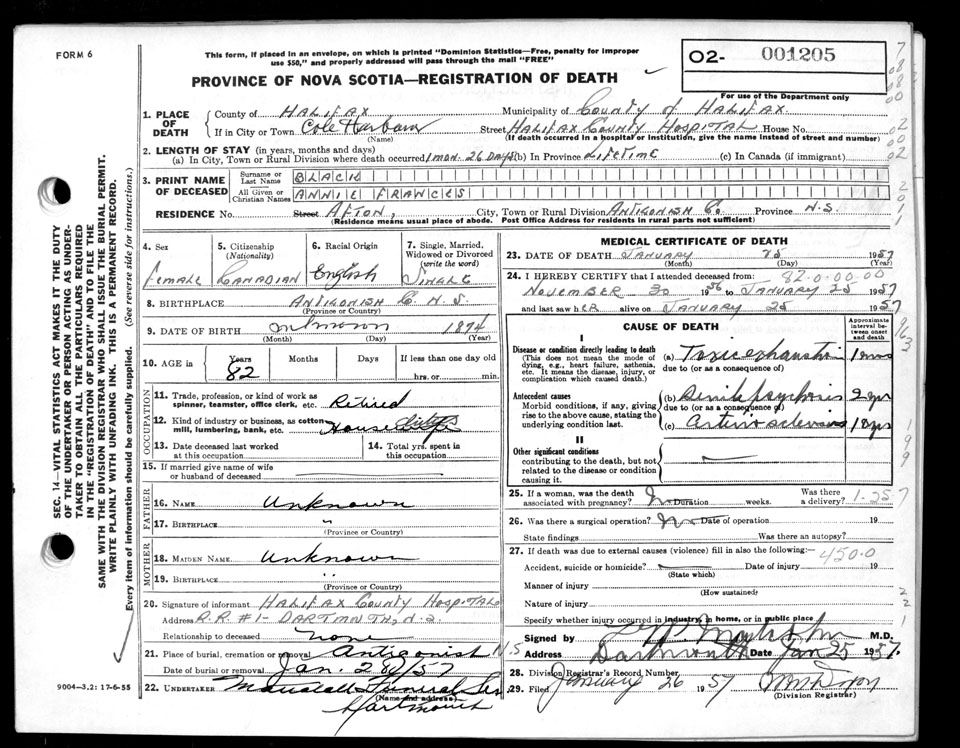 FORM 6
This form, if placed in an envelope, on which is printed "Dominion Statistics—Free, penalty for improper
use $50," and properly addressed will pass through the mail "FREE"
O2- 001205
PROVINCE OF NOVA SCOTIA—REGISTRATION OF DEATH
For use of the Department only
1. PLACE OF DEATH
County of HALIFAX Municipality of County of HALIFAX.
If in City or Town Cole Harbour Street HALIFAX COUNTY HOSPITAL House No.
(Name) (If death occurred in a hospital or institution, give the name instead of street and number)
2. LENGTH OF STAY (in years, months and days)
(a) In City, Town or Rural Division where death occurred 1 mon. 26 Days (b) In Province LIFETIME (c) In Canada (if immigrant)
3. PRINT NAME OF DECEASED
Surname or Last Name BLACK
All Given or Christian Names ANNIE FRANCES
RESIDENCE No. Street AFTON, City, Town or Rural Division ANTIGONISH Co. Province N.S.
Residence means usual place of abode. Post Office Address for residents in rural parts not sufficient)
4. Sex
Female
5. Citizenship
(Nationality)
CANADIAN
6. Racial Origin
English
7. Single, Married, Widowed or Divorced
(write the word)
SINGLE
8. BIRTHPLACE ANTIGONISH C. N.S.
(Province or Country)
9. DATE OF BIRTH unknown 1874
(Month) (Day) (Year)
10. AGE in Years 82 Months Days If less than one day
hrs. or min.
OCCUPATION
11. Trade, profession, or kind of work as
spinner, teamster, office clerk, etc. Retired
12. Kind of industry or business, as cotton
mill, lumbering, bank, etc. House duties
13. Date deceased last worked
at this occupation
14. Total yrs. spent in
this occupation
15. If married give name of wife
or husband of deceased
FATHER
16. NAME Unknown
17. BIRTHPLACE "
(Province or Country)
MOTHER
18. MAIDEN NAME Unknown
19. BIRTHPLACE "
(Province or Country)
20. Signature of informant HALIFAX COUNTY HOSPITAL
Address R.R. #1- DARTMNTH, N.S.
Relationship to deceased none
21. Place of burial, cremation or removal Antigonish N.S
Date of burial or removal Jan. 28/57
22. UNDERTAKER Funeral Ser
(Name and address)
Dartmouth
MEDICAL CERTIFICATE OF DEATH
23. DATE OF DEATH JANUARY 25 1957
(Month) (Day) (Year)
24. I HEREBY CERTIFY that I attended deceased from: 82-0-00-00
NOVEMBER 30 1956 to JANUARY 25 1957
and last saw hER alive on JANUARY 25 1957
CAUSE OF DEATH
Approximate interval between onset and death
I
Disease or condition directly leading to death
(This does not mean the mode of
dying, e.g., heart failure, asthenia,
etc. It means the disease, injury, or
complication which caused death.)
(a) Toxic exhaustion
due to (or as a consequence of)
Antecedent causes
Morbid conditions, if any, giving
rise to the above cause, stating the
underlying condition last.
(b) Senile psychosis 2 yr
due to (or as a consequence of)
(c) Arterio sclerosis 10 yrs
II
Other significant conditions
contributing to the death, but not
related to the disease or condition
causing it.
25. If a woman, was the death
associated with pregnancy? No Duration weeks. Was there
a delivery? 1-257
26. Was there a surgical operation? No Date of operation 19
State findings Was there an autopsy?
27. If death was due to external causes (violence) fill in also the following:- 450-0
Accident, suicide or homicide? Date of injury 19
(State which)
Manner of injury
(How sustained)
Nature of injury
Specify whether injury occurred in industry, in home, or in public place
Signed by M.D.
Address Dartmouth Date Jan 25 1957.
28. Division Registrar's Record Number
29. Filed January 26 1957
(Division Registrar)
SEC. 14—VITAL STATISTICS ACT MAKES IT THE DUTY
OF THE UNDERTAKER OR PERSON ACTING AS UNDER-
TAKER TO OBTAIN ALL THE PARTICULARS REQUIRED
IN THE "REGISTRATION OF DEATH" AND TO FILE THE
SAME WITH THE DIVISION REGISTRAR WHO SHALL ISSUE THE BURIAL PERMIT.
WRITE PLAINLY WITH UNFADING INK. THIS IS A PERMANENT RECORD.
Every item of information should be carefully supplied. (See reverse side for instructions.)
9004-3,2: 17-6-55